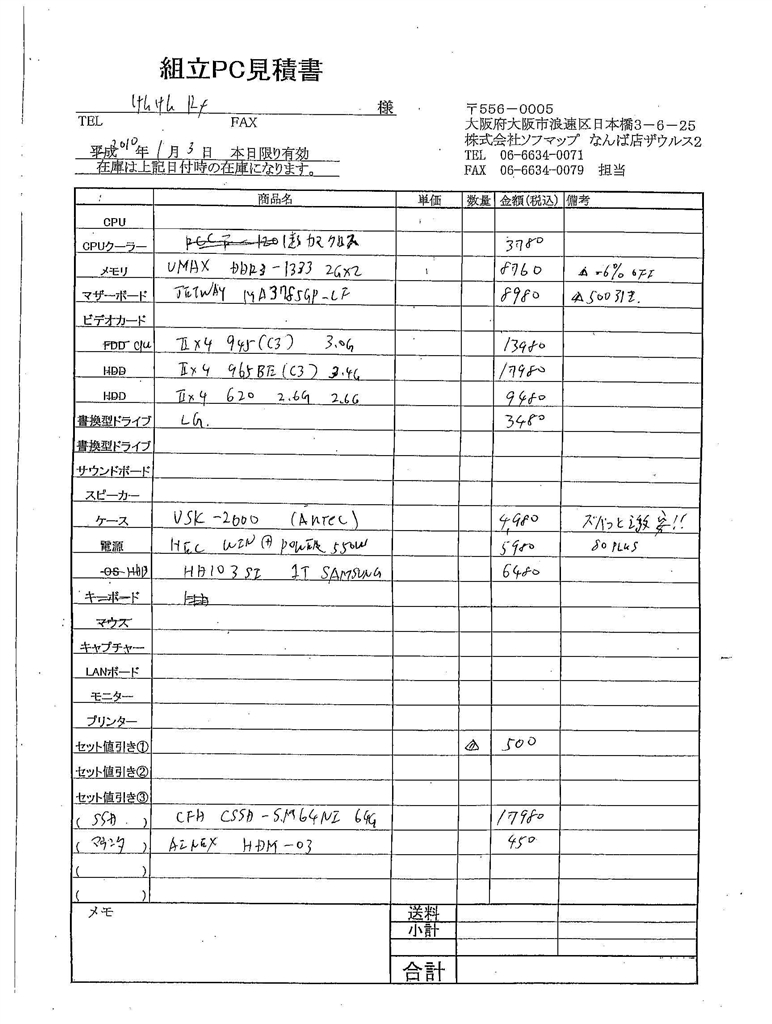 組立PC見積書
けんけん 様
TEL FAX
平成2010年1月3日 本日限り有効
在庫は上記日付時の在庫になります。
〒556-0005
大阪府大阪市浪速区日本橋3-6-25
株式会社ソフマップ なんば店ザウルス2
TEL 06-6634-0071
FAX 06-6634-0079 担当
商品名 単価 数量 金額(税込) 備考
CPU
CPUクーラー カマクロス 3780
メモリ UMAX DDR3-1333 2G×2 8760 △-6% OFF
マザーボード JETWAY MA3785GP-LF 8980 △500引き
ビデオカード
FDD CPU II×4 945(C3) 3.0G 13980
HDD II×4 965BE(C3) 3.4G 17980
HDD II×4 620 2.6G 2.6G 9480
書換型ドライブ LG. 3480
書換型ドライブ
サウンドボード
スピーカー
ケース VSK-2000 (Antec) 4,980 ズバっと激安!!
電源 HEC WIN(+) POWER 550W 5980 80PLUS
OS HDD HD103SI 1T SAMSUNG 6480
キーボード
マウス
キャプチャー
LANボード
モニター
プリンター
セット値引き① △ 500
セット値引き②
セット値引き③
( SSD ) CFD CSSD-SM64NI 64G 17980
( マウンタ ) AINEX HDM-03 450
( )
( )
メモ 送料
小計
合計